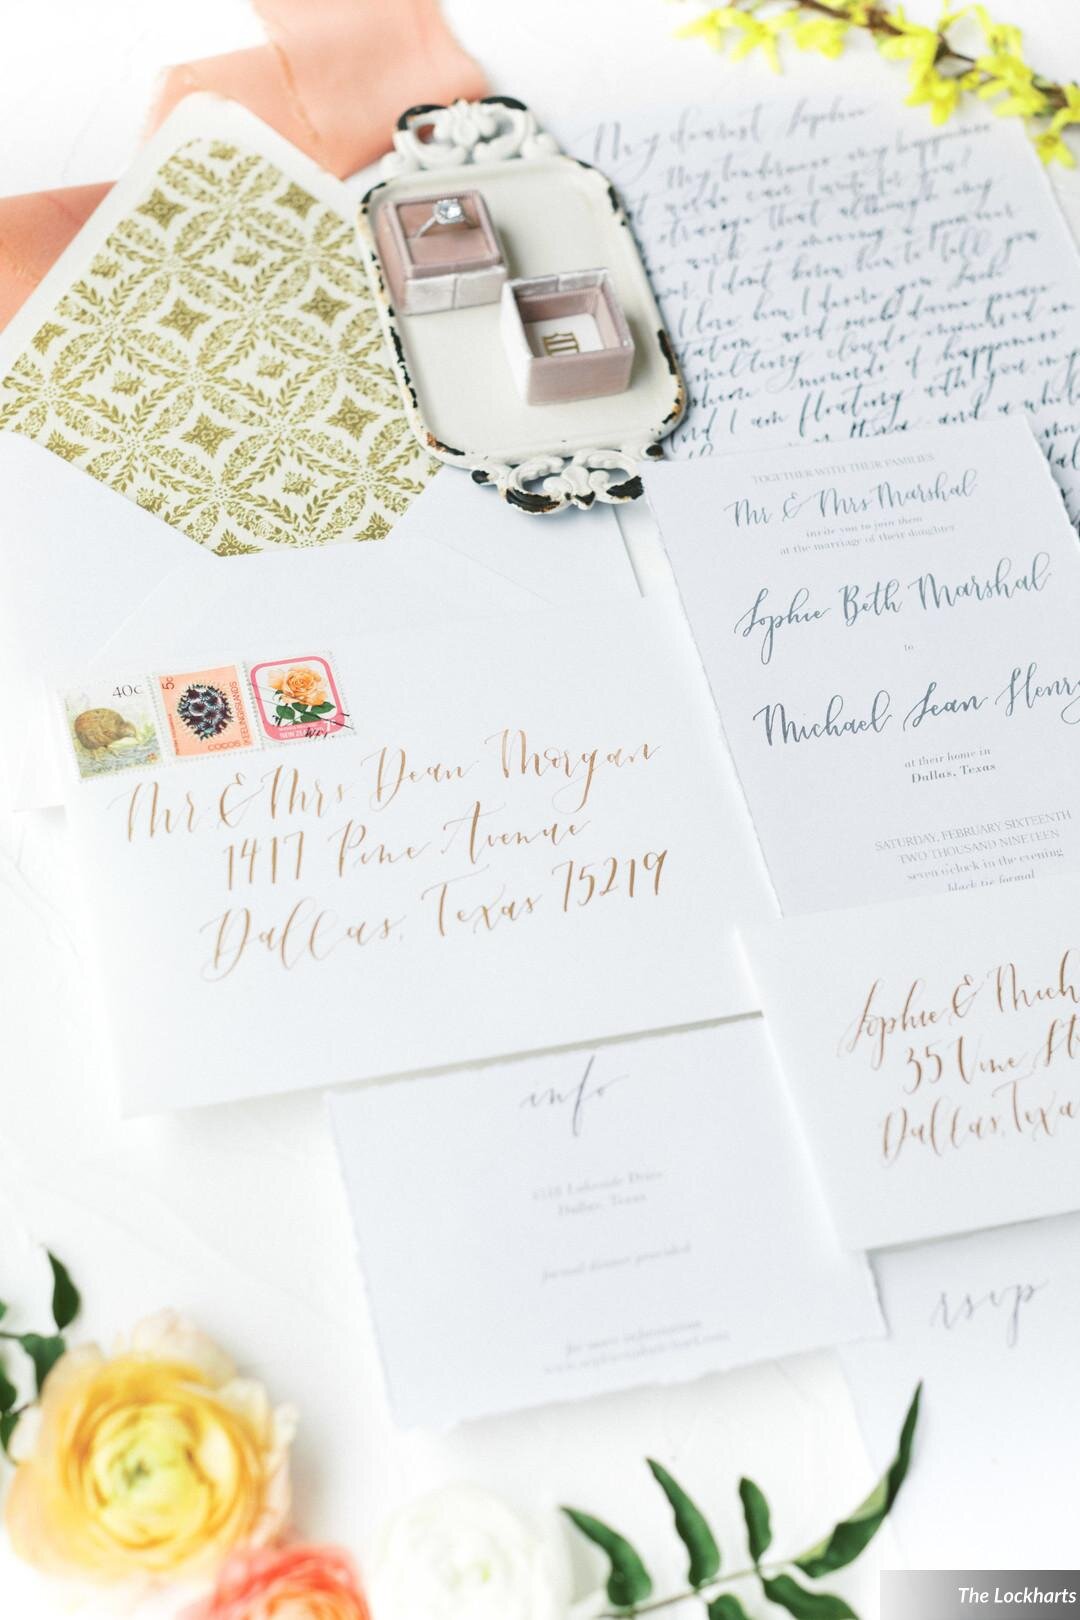 My dearest Sophie
My tenderness my happiness
what words can I write for you?
strange that although my
work is moving a pen over
I don't know how to tell you
love, how I desire you. Such
and such divine peace
melting clouds immersed in
mounds of happiness
And I am floating with you in
and a whole
TOGETHER WITH THEIR FAMILIES
Mr & Mrs Marshal
invite you to join them
at the marriage of their daughter
Sophie Beth Marshal
to
Michael Sean Henry
at their home in
Dallas, Texas
SATURDAY, FEBRUARY SIXTEENTH
TWO THOUSAND NINETEEN
seven o'clock in the evening
black tie formal
40c
5c
COCOS
(KEELING) ISLANDS
NEW ZEALAND
Mr & Mrs Dean Morgan
1417 Pine Avenue
Dallas, Texas 75219
Sophie & Mich
35 Vine St
Dallas, Texa
info
Lakeside Drive
Dallas, Texas
formal dinner provided
for more information
rsvp
The Lockharts